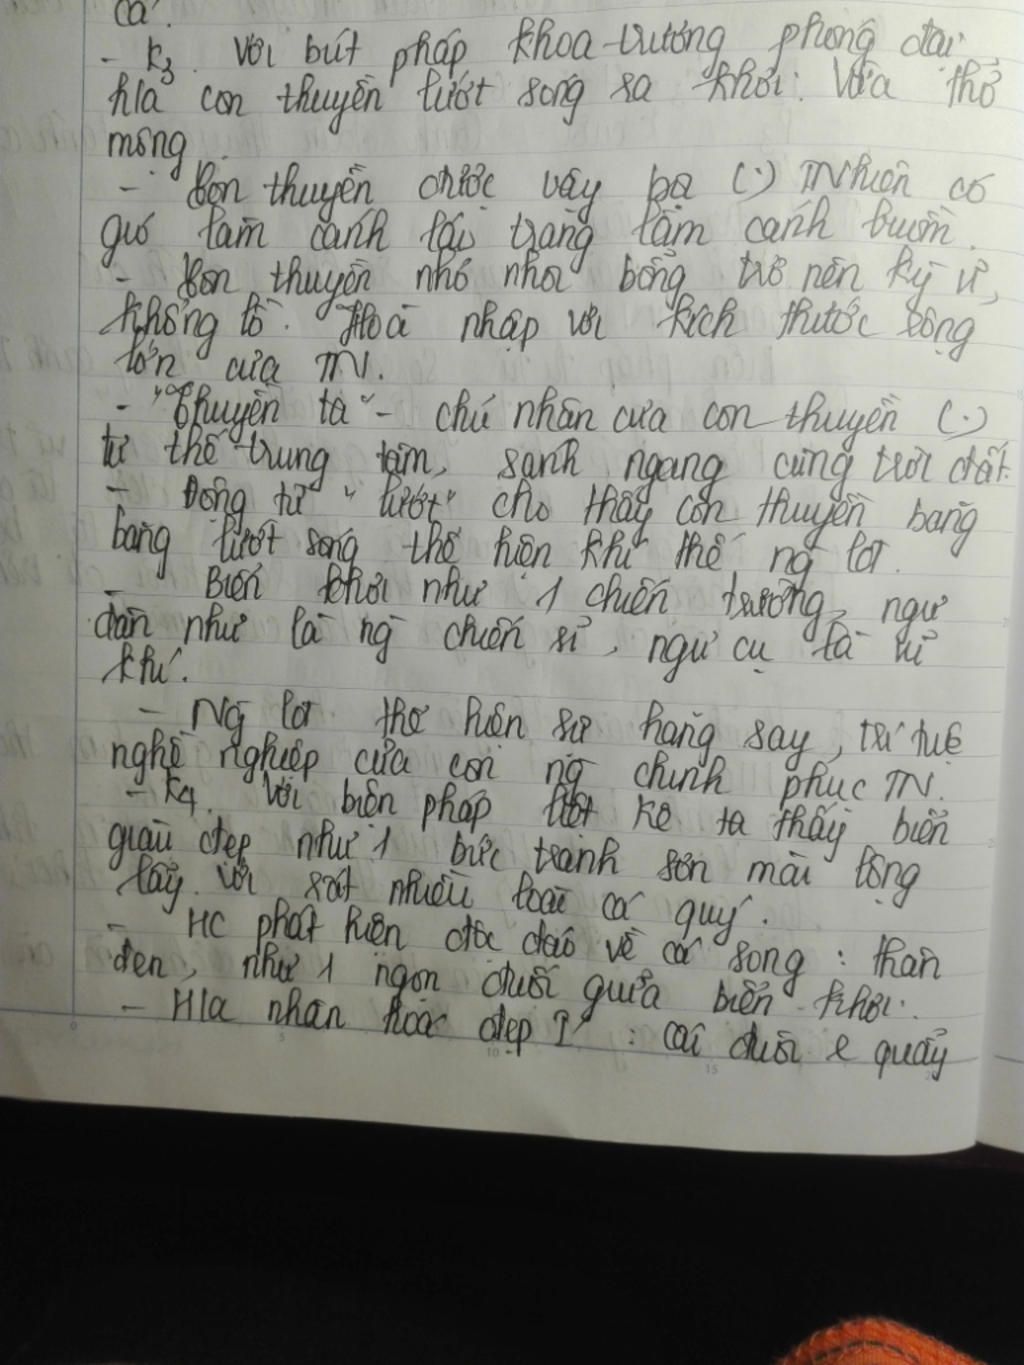 cá.
- K3. Với bút pháp khoa trương phóng đại
h/a con thuyền lướt sóng ra khơi. Vừa thơ
mộng.
- Con thuyền được vây bọ (.) TNhiên có
gió làm cánh lái, trăng làm cánh buồm.
- Con thuyền nhỏ nhoi bỗng trở nên kỳ vĩ,
khổng lồ. Hoà nhập với kích thước rộng
lớn của TN.
- "Thuyền ta" - chủ nhân của con thuyền (.)
tư thế trung tâm, sánh ngang cùng trời đất.
- Động từ "lướt" cho thấy con thuyền băng
băng lướt sóng thể hiện khí thế ng lđ.
- Biển khơi như 1 chiến trường, ngư
dân như là ng chiến sĩ, ngư cụ là vũ
khí.
- Ng lđ thể hiện sự hăng say, trí tuệ
nghề nghiệp của con ng chinh phục TN.
- K4. Với biện pháp liệt kê ta thấy biển
giàu đẹp như 1 bức tranh sơn mài lộng
lẫy với rất nhiều loài cá quý.
- HC phát hiện độc đáo về cá song: thân
đen, như 1 ngọn đuốc giữa biển khơi.
- H/a nhân hoá đẹp : cái đuôi e quẫy